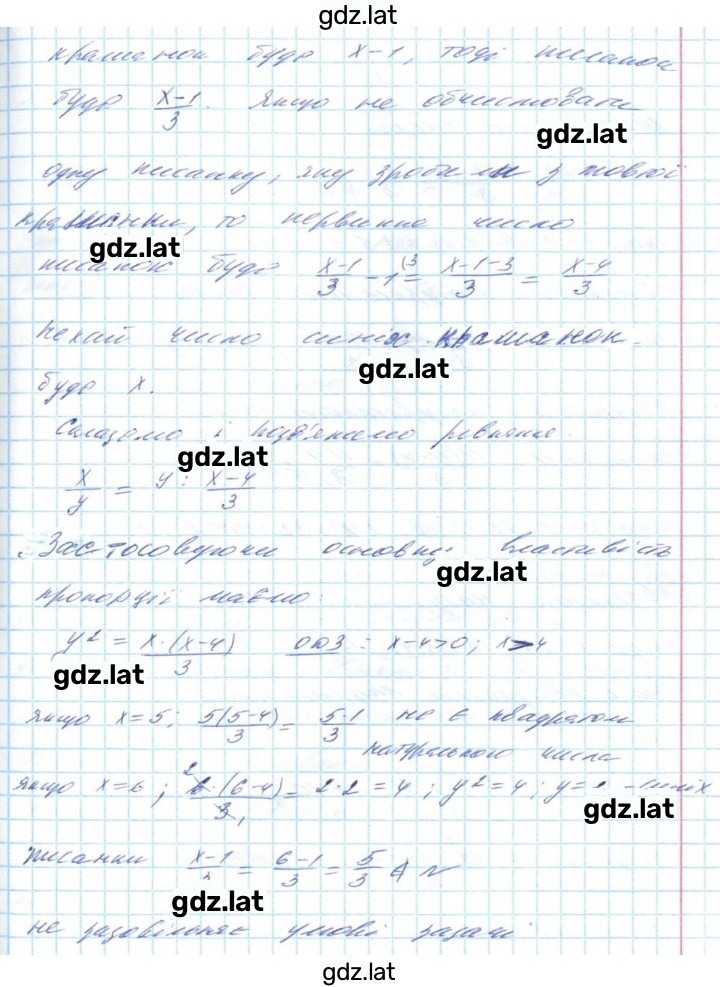 gdz.lat
крашанок буде x-1, тоді писанок
буде (x-1)/3. Якщо не обчислювати
gdz.lat
одну писанку, яку зробили з жовтої
крашанки, то первинне число
gdz.lat
писанок буде (x-1)/3 - 1^(3 = (x-1-3)/3 = (x-4)/3
Нехай число синіх крашанок
gdz.lat
буде x.
Складемо і розв'яжемо рівняння.
gdz.lat
x/y = y : (x-4)/3
Застосовуючи основну властивість
gdz.lat
пропорції маємо:
y² = x·(x-4)/3 ОДЗ: x-4>0; x>4
gdz.lat
якщо x=5; 5(5-4)/3 = 5·1/3 не є квадратом
натурального числа
якщо x=6; 6·(6-4)/3 = 2·2=4; y²=4; y= - синіх
gdz.lat
писанки (x-1)/3 = (6-1)/3 = 5/3 ∉ N
gdz.lat
не задовільняє умові задачі
gdz.lat